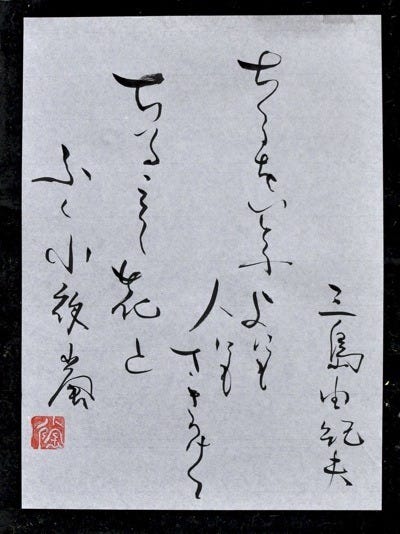 三島由紀夫
ちるをいとふよにも
人にもさきかけて
ちるこそ花と
ふく小夜嵐